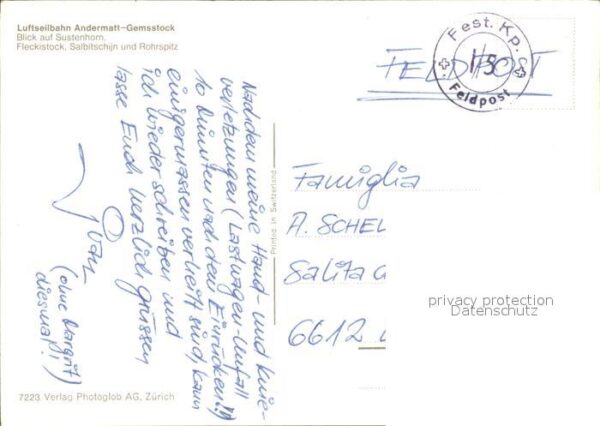 Luftseilbahn Andermatt–Gemsstock
Blick auf Sustenhorn,
Fleckistock, Salbitschijn und Rohrspitz
Nachdem meine Hand- und Knie-
verletzungen (Lastwagen-Unfall
10 Minuten nach dem Einrücken!!)
einigermassen verheilt sind, kann
ich wieder schreiben und
lasse Euch herzlich grüssen
(ohne Margrit
diesmal!)
7223 Verlag Photoglob AG, Zürich
Printed in Switzerland
Fest. Kp.
Feldpost
FELDPOST
Famiglia
A. SCHEL
Salita
6612
privacy protection
Datenschutz